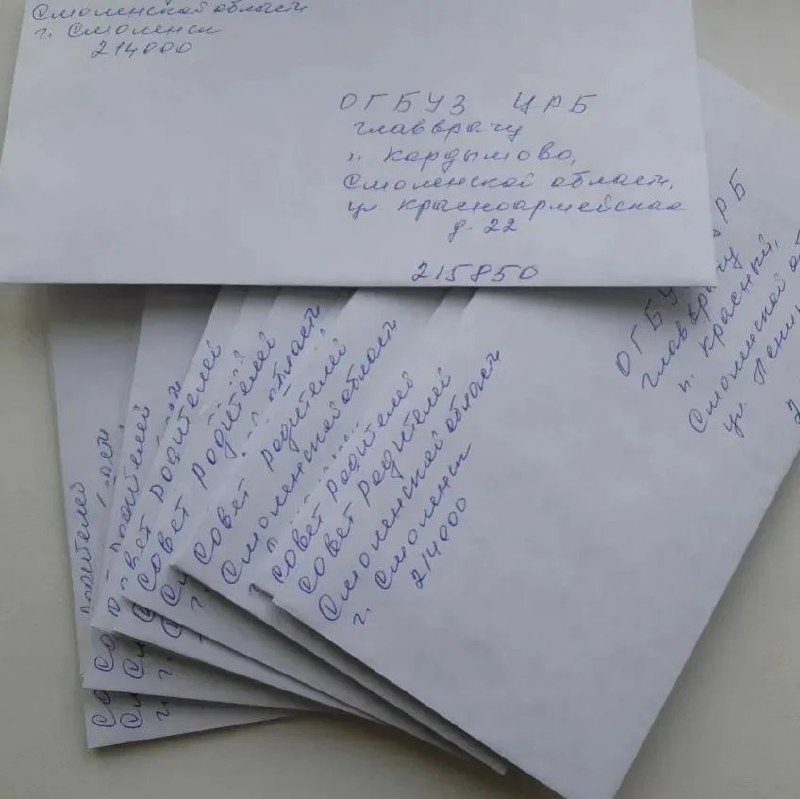 Смоленской области
г. Смоленск
214000
ОГБУЗ ЦРБ
главврачу
п. Кардымово,
Смоленской области,
ул Красноармейская
д. 22
215850
ЦРБ
ОГБУЗ
главврачу
п. Красный,
Смоленской
ул. Ленин
родителей
Совет родителей
Совет родителей
области
Совет родителей
Смоленской области
Совет родителей
Совет родителей
Смоленской области
г. Смоленск
214000